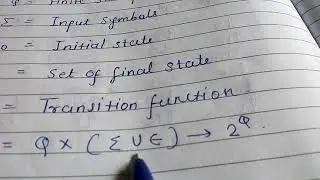 = Finite
Σ = Input symbols
= Initial state
= Set of final state
= Transition function
= Q × (Σ ∪ ∈) → 2^Q.